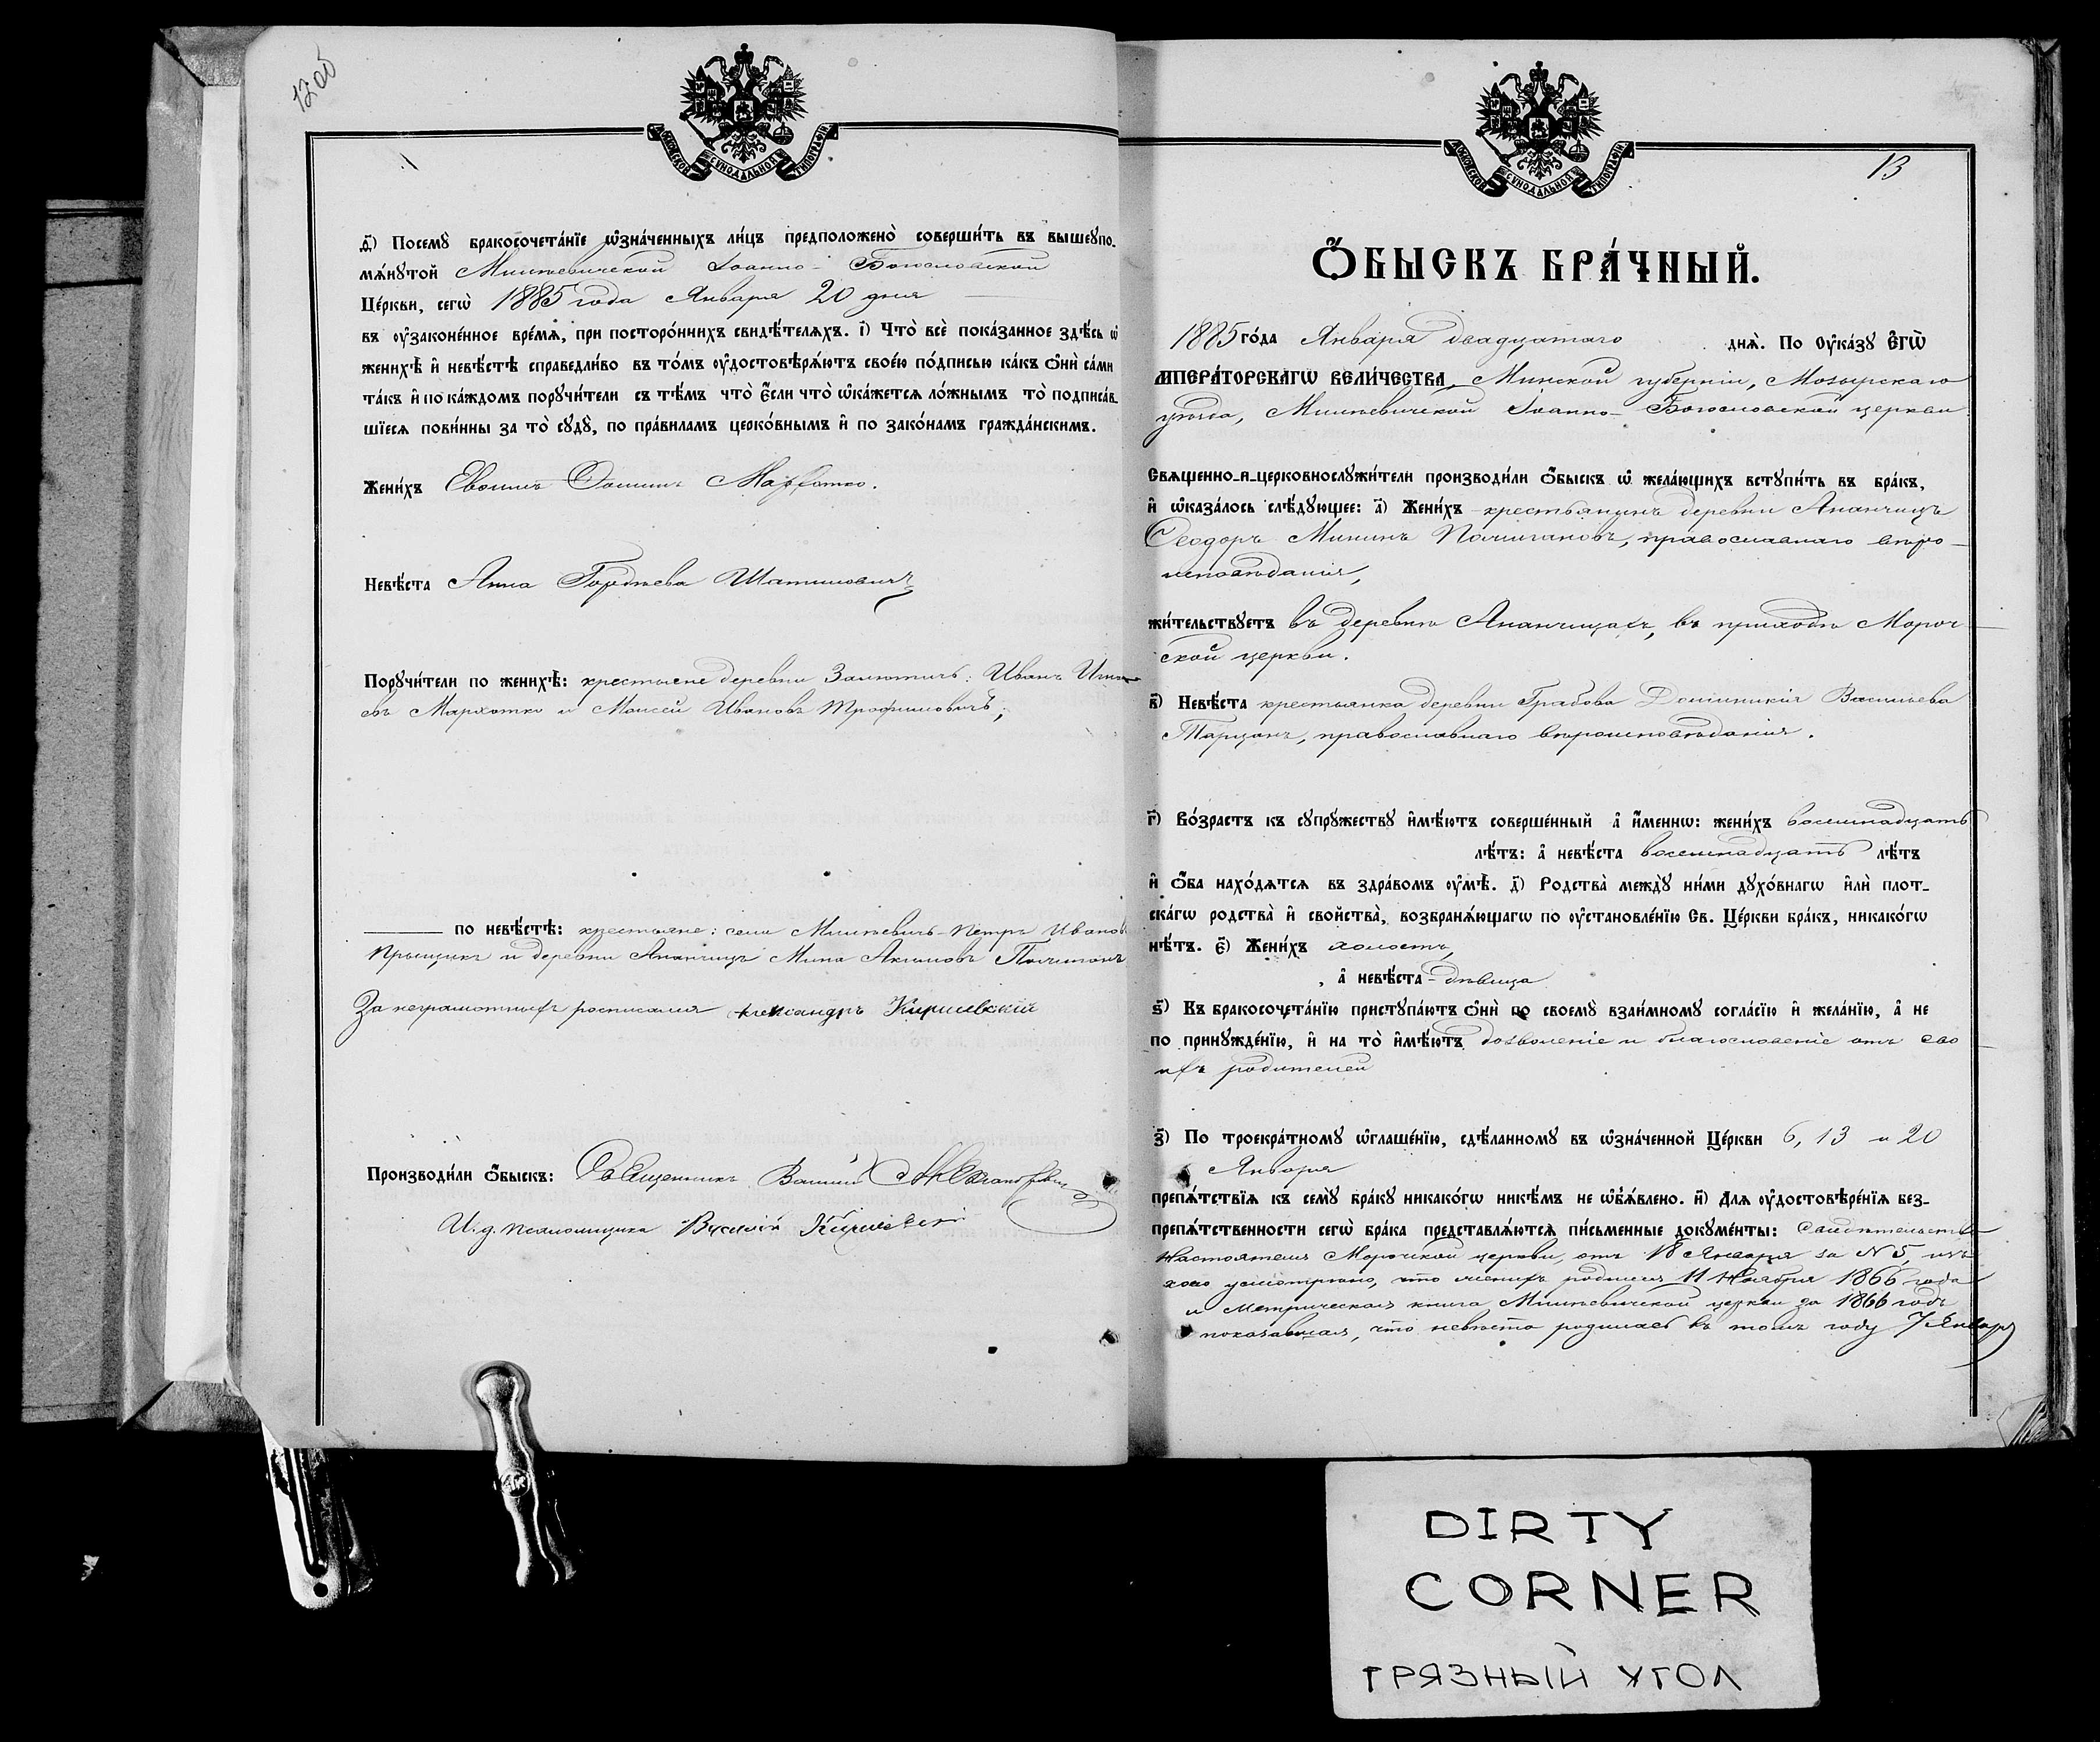 12об
МОСКОВСКОЙ СѴНОДАЛЬНОЙ ТИПОГРАФІИ
д҃) Посемꙋ̀ бракосочета́нїе ѡ҆зна́ченныхъ ли́цъ предположено̀ соверши́ть въ вышеꙋпо-
мѧ́нꙋтой Милевичской Іоанно-Богословской
Це́ркви, сегѡ̀ 1885 года Января 20 дня
въ оу҆зако́ненное вре́мѧ, при посторо́ннихъ свидѣ́телѧхъ. і҃) Что̀ всѐ пока́занное здѣ́сь ѡ҆
женихѣ̀ и҆ невѣ́стѣ справедли́во въ то́мъ оу҆достовѣрѧ́ютъ свое́ю по́дписью ка́къ ѻ҆нѝ са́ми
та́къ и҆ по ка́ждомъ порꙋчи́тели съ тѣ́мъ что̀ є҆́сли что̀ ѡ҆ка́жетсѧ ло́жнымъ то̀ подписа́в-
шїесѧ пови́нны за то̀ сꙋдꙋ̀, по пра́виламъ церко́внымъ и҆ по зако́намъ гражда́нскимъ.
Жени́хъ Мархотко.
Невѣ́ста Анна Гордѣева Шатилович
Порꙋчи́тели по женихѣ̀: крестьяне деревни Залютичъ: Иванъ
евъ Мархотко и Моисей Ивановъ Трофимовичъ;
по невѣ́стѣ: крестьяне: села Милевичъ Петръ Иванов
Прыщикъ и деревни Ананчицъ Мина Акимовъ
За неграмотныхъ росписался Александръ Киркевскій
Производи́ли ѻ҆́быскъ: Священникъ
И. д. псаломщика Василій
МОСКОВСКОЙ СѴНОДАЛЬНОЙ ТИПОГРАФІИ
13
Ѻ҆́БЫСКЪ БРА́ЧНЫЙ.
1885 го́да Января двадцатаго днѧ̀. По Оу҆ка́зꙋ Є҆гѡ̀
ИМПЕРА́ТОРСКАГѠ ВЕЛИ́ЧЕСТВА, Минской губерніи, Мозырскаго
уѣзда, Милевичской Іоанно-Богословской церкви
Свѧщенно-и-церковнослꙋжи́тели производи́ли ѻ҆́быскъ ѡ҆ жела́ющихъ встꙋпи́ть въ бра́къ,
и҆ ѡ҆каза́лось слѣ́дꙋющее: а҃) Жени́хъ крестьянинъ деревни Ананчицъ
Ѳеодоръ Мининъ православнаго вѣро-
исповѣданія,
жи́тельствꙋетъ въ деревнѣ Ананчицахъ, въ приходѣ Мороч-
ской церкви.
в҃) Невѣ́ста крестьянка деревни Грабова Доминикія Васильева
православнаго вѣроисповѣданія.
г҃) Во́зрастъ къ сꙋпрꙋ́жествꙋ и҆мѣ́ютъ соверше́нный а҆ и҆́меннѡ: жени́хъ восемнадцать
лѣ́тъ: а҆ невѣ́ста восемнадцать лѣ́тъ
и҆ ѻ҆́ба нахо́дѧтсѧ въ здра́вомъ оу҆мѣ̀. д҃) Родства̀ междꙋ̀ ни́ми дꙋхо́внагѡ и҆лѝ плот-
ска́гѡ родства̀ и҆ сво́йства̀, возбранѧ́ющагѡ по оу҆становле́нїю Св. Це́ркви бра́къ, никако́гѡ
нѣ́тъ. є҃) Жени́хъ холостъ,
, а҆ невѣ́ста дѣвица
ѕ҃) Къ бракосочета́нїю пристꙋпа́ютъ ѻ҆нѝ по своемꙋ̀ взаи́мномꙋ согла́сїю и҆ жела́нїю, а҆ не
по принꙋжде́нїю, и҆ на то̀ и҆мѣ́ютъ дозволеніе и благословеніе отъ сво
ихъ родителей
з҃) По троекра́тномꙋ ѡ҆глаше́нїю, сдѣ́ланномꙋ въ ѡ҆зна́ченной Це́ркви 6, 13 и 20
Января
препѧ́тствїѧ къ семꙋ̀ бра́кꙋ никако́гѡ никѣ́мъ не ѡ҆б̾ѧ́влено. и҃) Для оу҆достовѣре́нїѧ без-
препѧ́тственности сегѡ̀ бра́ка представлѧ́ютсѧ пи́сьменные докꙋме́нты: Свидѣтельство
Настоятеля Морочской церкви, отъ 18 Января за N 5, изъ
коего усмотрѣно, что женихъ родился 11 Ноября 1866 года
и Метрическая книга Милевичской церкви за 1866 годъ
показавшая, что невѣста родилась въ томъ году 7 Января
DIRTY
CORNER
ГРЯЗНЫЙ УГОЛ